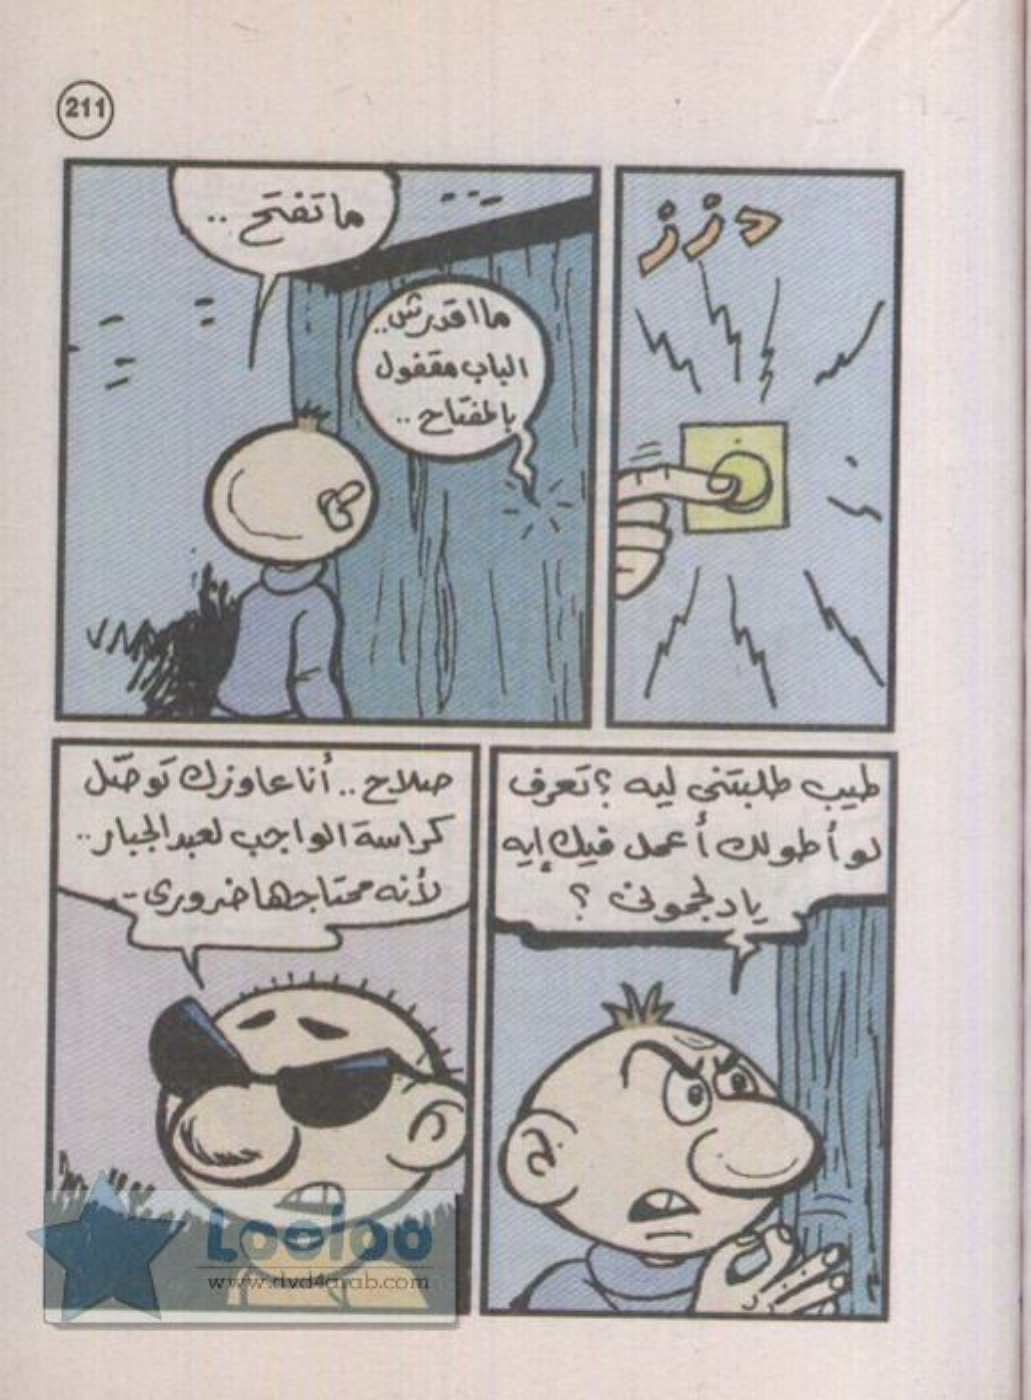 211
دززز
ما تفتح ..
ما اقدرش..
الباب مقفول
بالمفتاح ..
طيب طلبتنى ليه ؟ تعرف
لو أطولك أعمل فيك إيه
يا دلجمونى ؟
صلاح .. أنا عاوزك توصّل
كراسة الواجب لعبد الجبار ..
لأنه محتاجها ضرورى ..
Looloo
www.dvd4arab.com